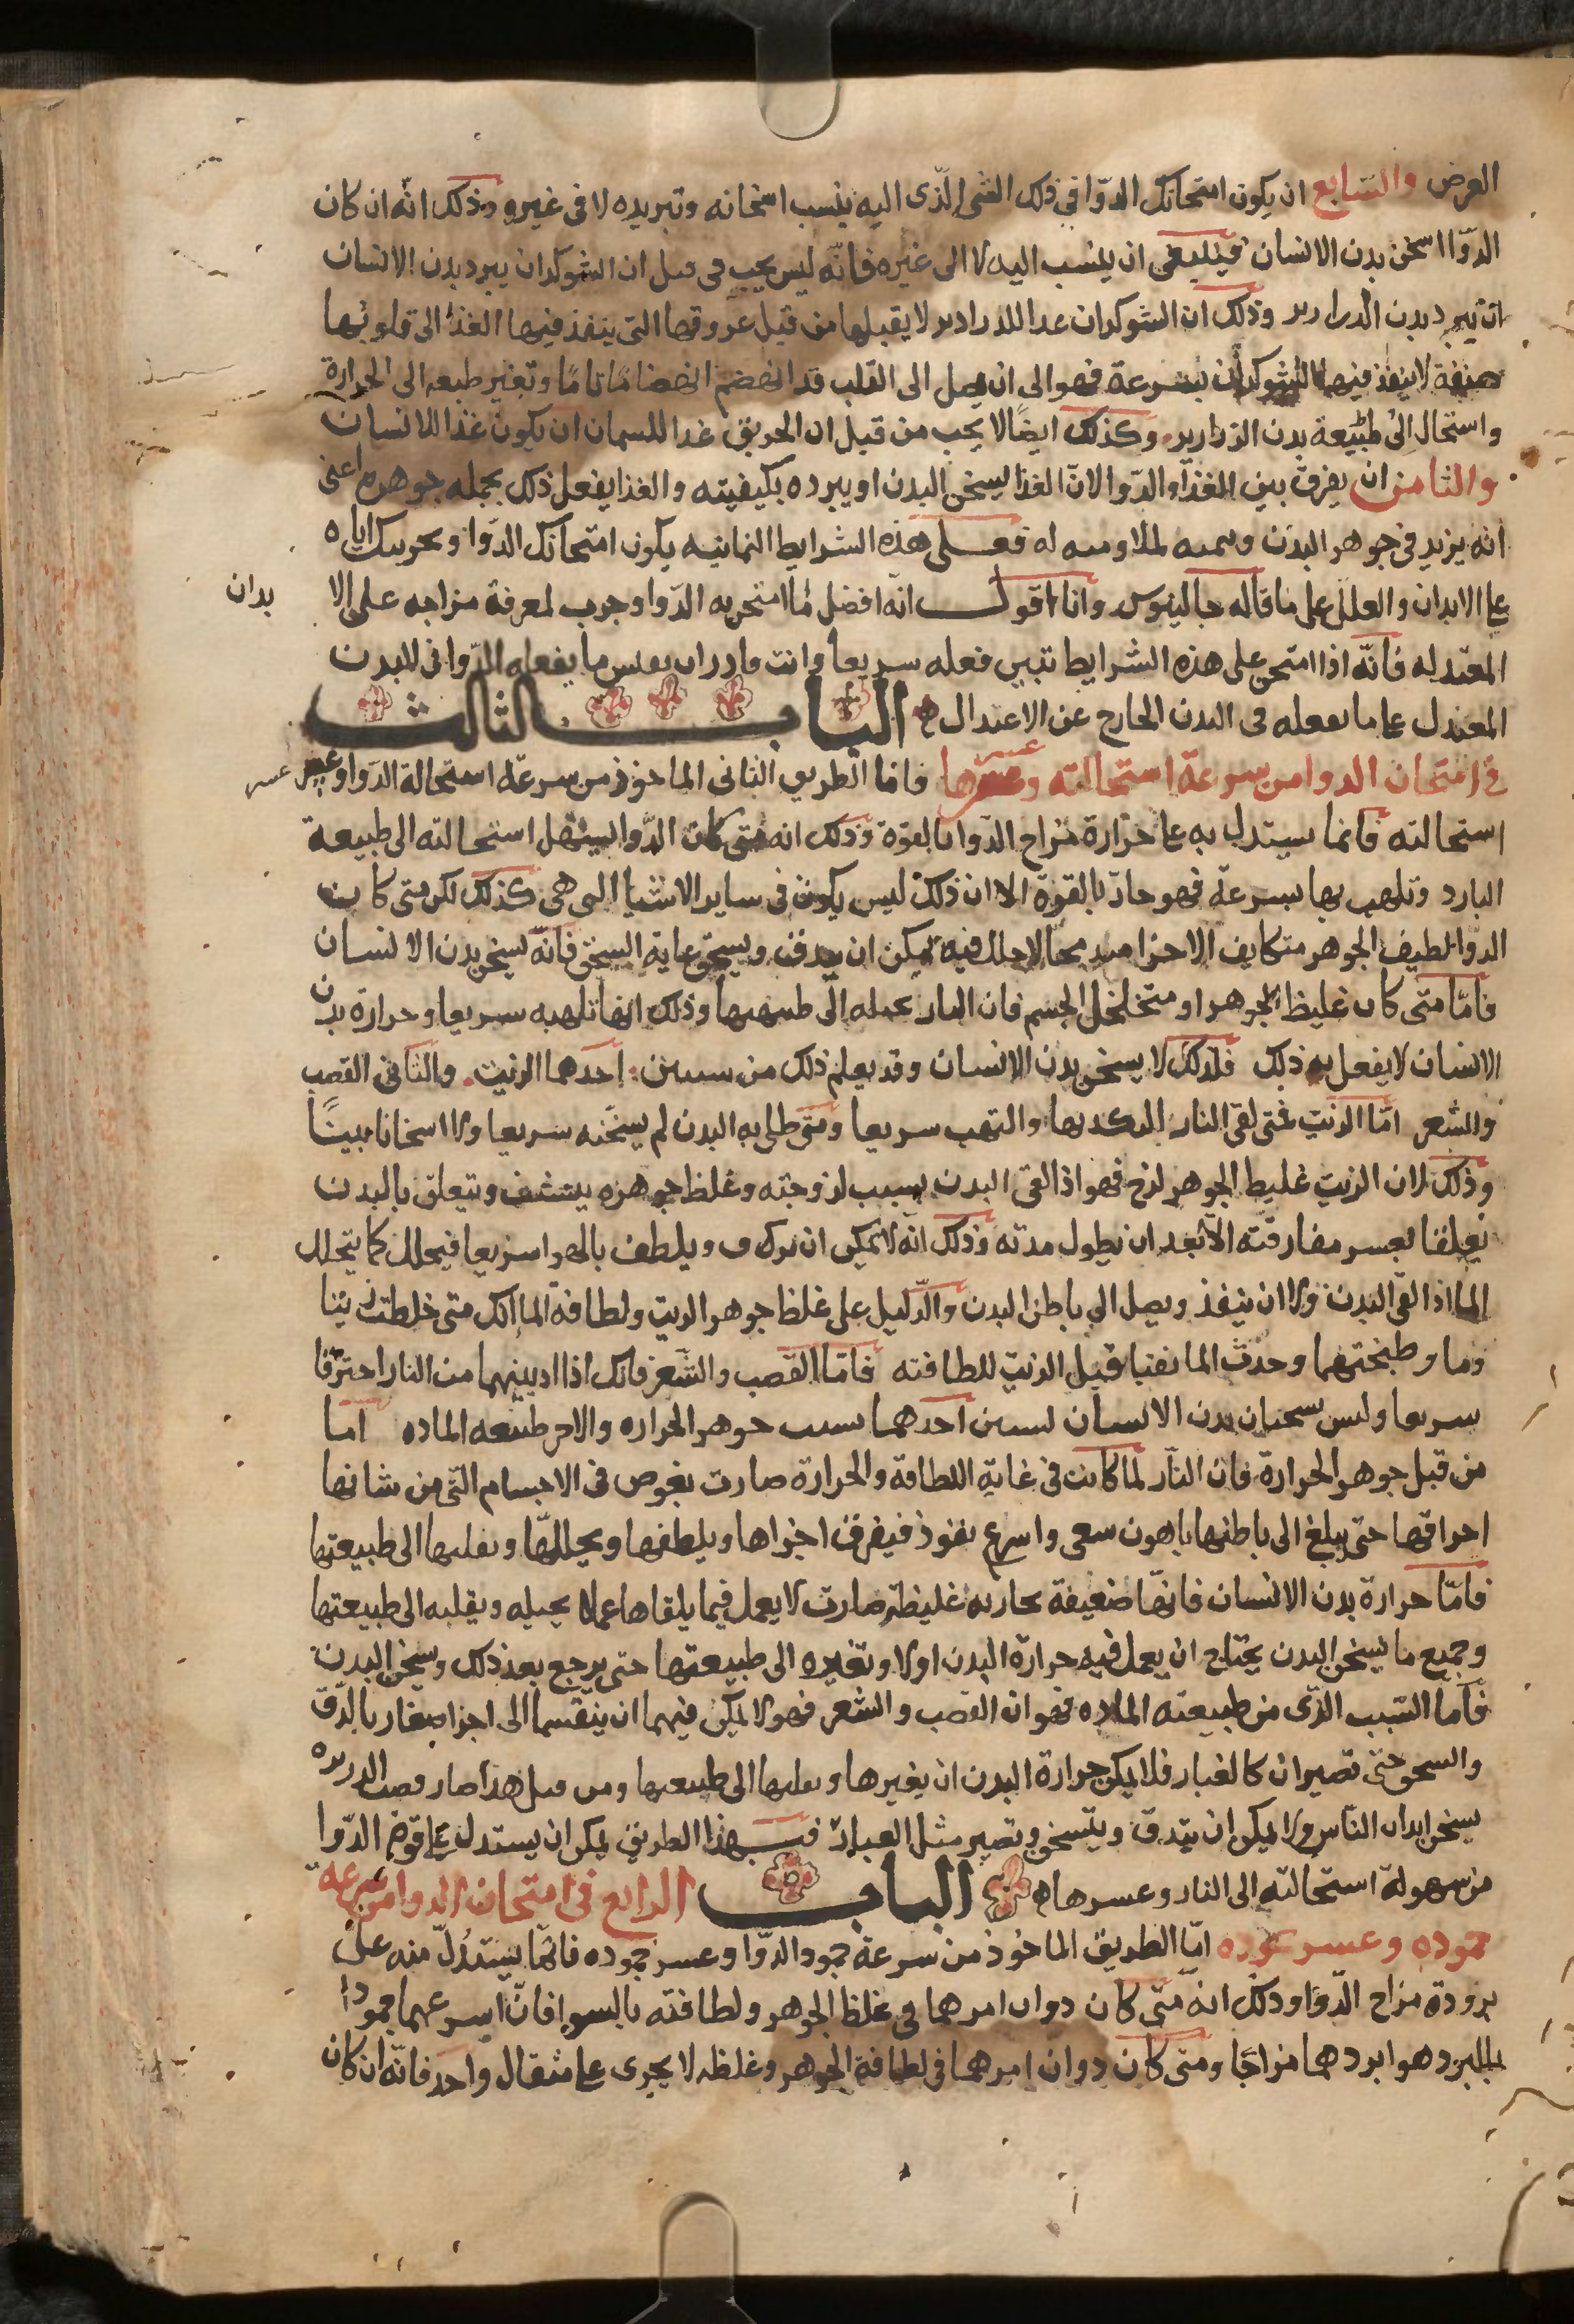 العرض والسّابع ان يكون امتحانك الدوّا في ذلك الشي الّذي اليه ينسب اسخانه وتبريده لا في غيره وذلك انّه ان كان
الدوّا اسخن بدن الانسان فينبغي ان ينسب اليه لا الى غيره فانّه ليس يجب من قبل ان الشوكران يبرد بدن الانسان
ان يبرد بدن الزرازير وذلك ان الشوكران غذا للزرازير لا يقبلها من قبل عروقها التي ينفذ فيها الغذا الى قلوبها
ضيقة لا ينفذ فيها الشوكران بسرعة فهو الى ان يصل الى القلب قد انهضم انهضامًا تامًا وتغير طبعه الى الحرارة
واستحال الى طبيعة بدن الزرازير وكذلك ايضًا لا يجب من قبل ان الخربق غذا للسمان ان يكون غذا للانسان
والثامن ان يفرق بين الغذا والدّوا لانّ الغذا يسخن البدن او يبرده بكيفيته والغذا يفعل ذلك بجمله جوهره اعني
انه يزيد في جوهر البدن له فعلى هذه الشرايط الثمانيه يكون امتحانك الدّوا وتجربتك اياه
على الابدان والعلل على ما قاله جالينوس وانا اقول انّه افضل ما امتحن به الدّوا وجرب لمعرفة مزاجه على الا بدان
المعتدله فانّه اذا امتحن على هذه الشرايط تبين فعله سريعا وانت قادر ان تقيس ما يفعله الدّوا في البدن
المعتدل على ما يفعله في البدن الخارج عن الاعتدال الباب الثالث
في امتحان الدوا من سرعة استحالته وعسرها عسر فاما الطريق الثاني الماخوذ من سرعة استحالة الدّوا وعسر عسر
استحالته فانما يستدل به على حرارة مزاج الدّوا بالقوة وذلك انه متى كان الدّوا يسهل استحالته الى طبيعة
البارد وتلهب بها بسرعة فهو حارّ بالقوة الا ان ذلك ليس يكون في ساير الاشيا التي هي كذلك لكن متى كانت
الدّوا لطيف الجوهر متكايف الاجزا يمكن ان يندق ويسحق غاية السحق فانّه يسخن بدن الانسان
فامّا متى كان غليظ الجوهر او متخلخل الجسم فان النار تحيله الى طبيعتها وذلك انها تلهبه سريعا وحرارة بدن
الانسان لا يفعل به ذلك فلذلك لا يسخن بدن الانسان وقد يعلم ذلك من سببين احدهما الزيت والثاني القصب
والشعر امّا الزيت فمتى لقي النار والتهب سريعا ومتى طلي به البدن لم يسخنه سريعا ولا اسخانا بينًا
وذلك لان الزيت غليظ الجوهر لزج فهو اذا لقي البدن بسبب لزوجته وغلظ جوهره يتشف ويتعلق بالبدن
تعلقا تعسر مفارقته الا بعد ان يطول مدته وذلك انّه لا يمكن ان ويلطف بالهوا سريعا فيحلل كما يتحلل
الما اذا لقي البدن ولا ان ينفذ ويصل الى باطن البدن والدّليل على غلظ جوهر الزيت ولطافة الما انك متى خلطت زيتا
وما وطبختهما وحدت الما يفنيا قبل الزيت للطافته فامّا القصب والشعر فانك اذا ادنيتهما من النار احترقا
سريعا وليس يسخنان بدن الانسان لسببين احدهما بسبب جوهر الحراره والاخر طبيعه الماده امّا
من قبل جوهر الحرارة فان النّار لما كانت في غاية اللطافة والحرارة صارت تغوص في الاجسام التي من شانها
احراقها حتى يبلغ الى باطنها باهون سعى واسرع نفوذ فيفرق اجزاها ويلطفها ويحللها ويقلبها الى طبيعتها
فامّا حرارة بدن الانسان فانها ضعيفة بخاريه غليظة صارت لا يعمل فيما يلقاها عملا يحيله ويقلبه الى طبيعتها
وجميع ما يسخن البدن يحتاج ان يعمل فيه حرارة البدن اولا وتغيره الى طبيعتها حتى يرجع بعد ذلك ويسخن البدن
فامّا السّبب الذّي من طبيعته الماده فهو ان القصب والشعر فهو لا يمكن فيهما ان ينقسما الى اجزا صغار بالدّق
والسحق حتى تصيران كالغبار فلا يمكن حرارة البدن ان يغيرها ويقلبها الى طبيعتها ومن قبل هذا صار قصب الذريره
يسخن ابدان النّاس ولا يمكن ان يتدق ويتسخن وتصير مثل الغبار فبهذا الطريق يمكن ان يستدل على قوة الدّوا
من سهولة استحالته الى النار وعسرها الباب الرابع في امتحان الدوا من سرعة
جموده وعسر جموده امّا الطريق الماخوذ من سرعة جمود الدّوا وعسر جموده فانما يستدلّ منه على
برودة مزاج الدّوا وذلك انّه متى كان دواان امرهما في غلظ الجوهر ولطافته بالسوا فانّ اسرعهما جمودا
بالبرد هو ابردهما مزاجًا ومتى كان دواان امرهما في لطافة الجوهر وغلظه لا يجرى على مثقال واحد فانّه ان كان